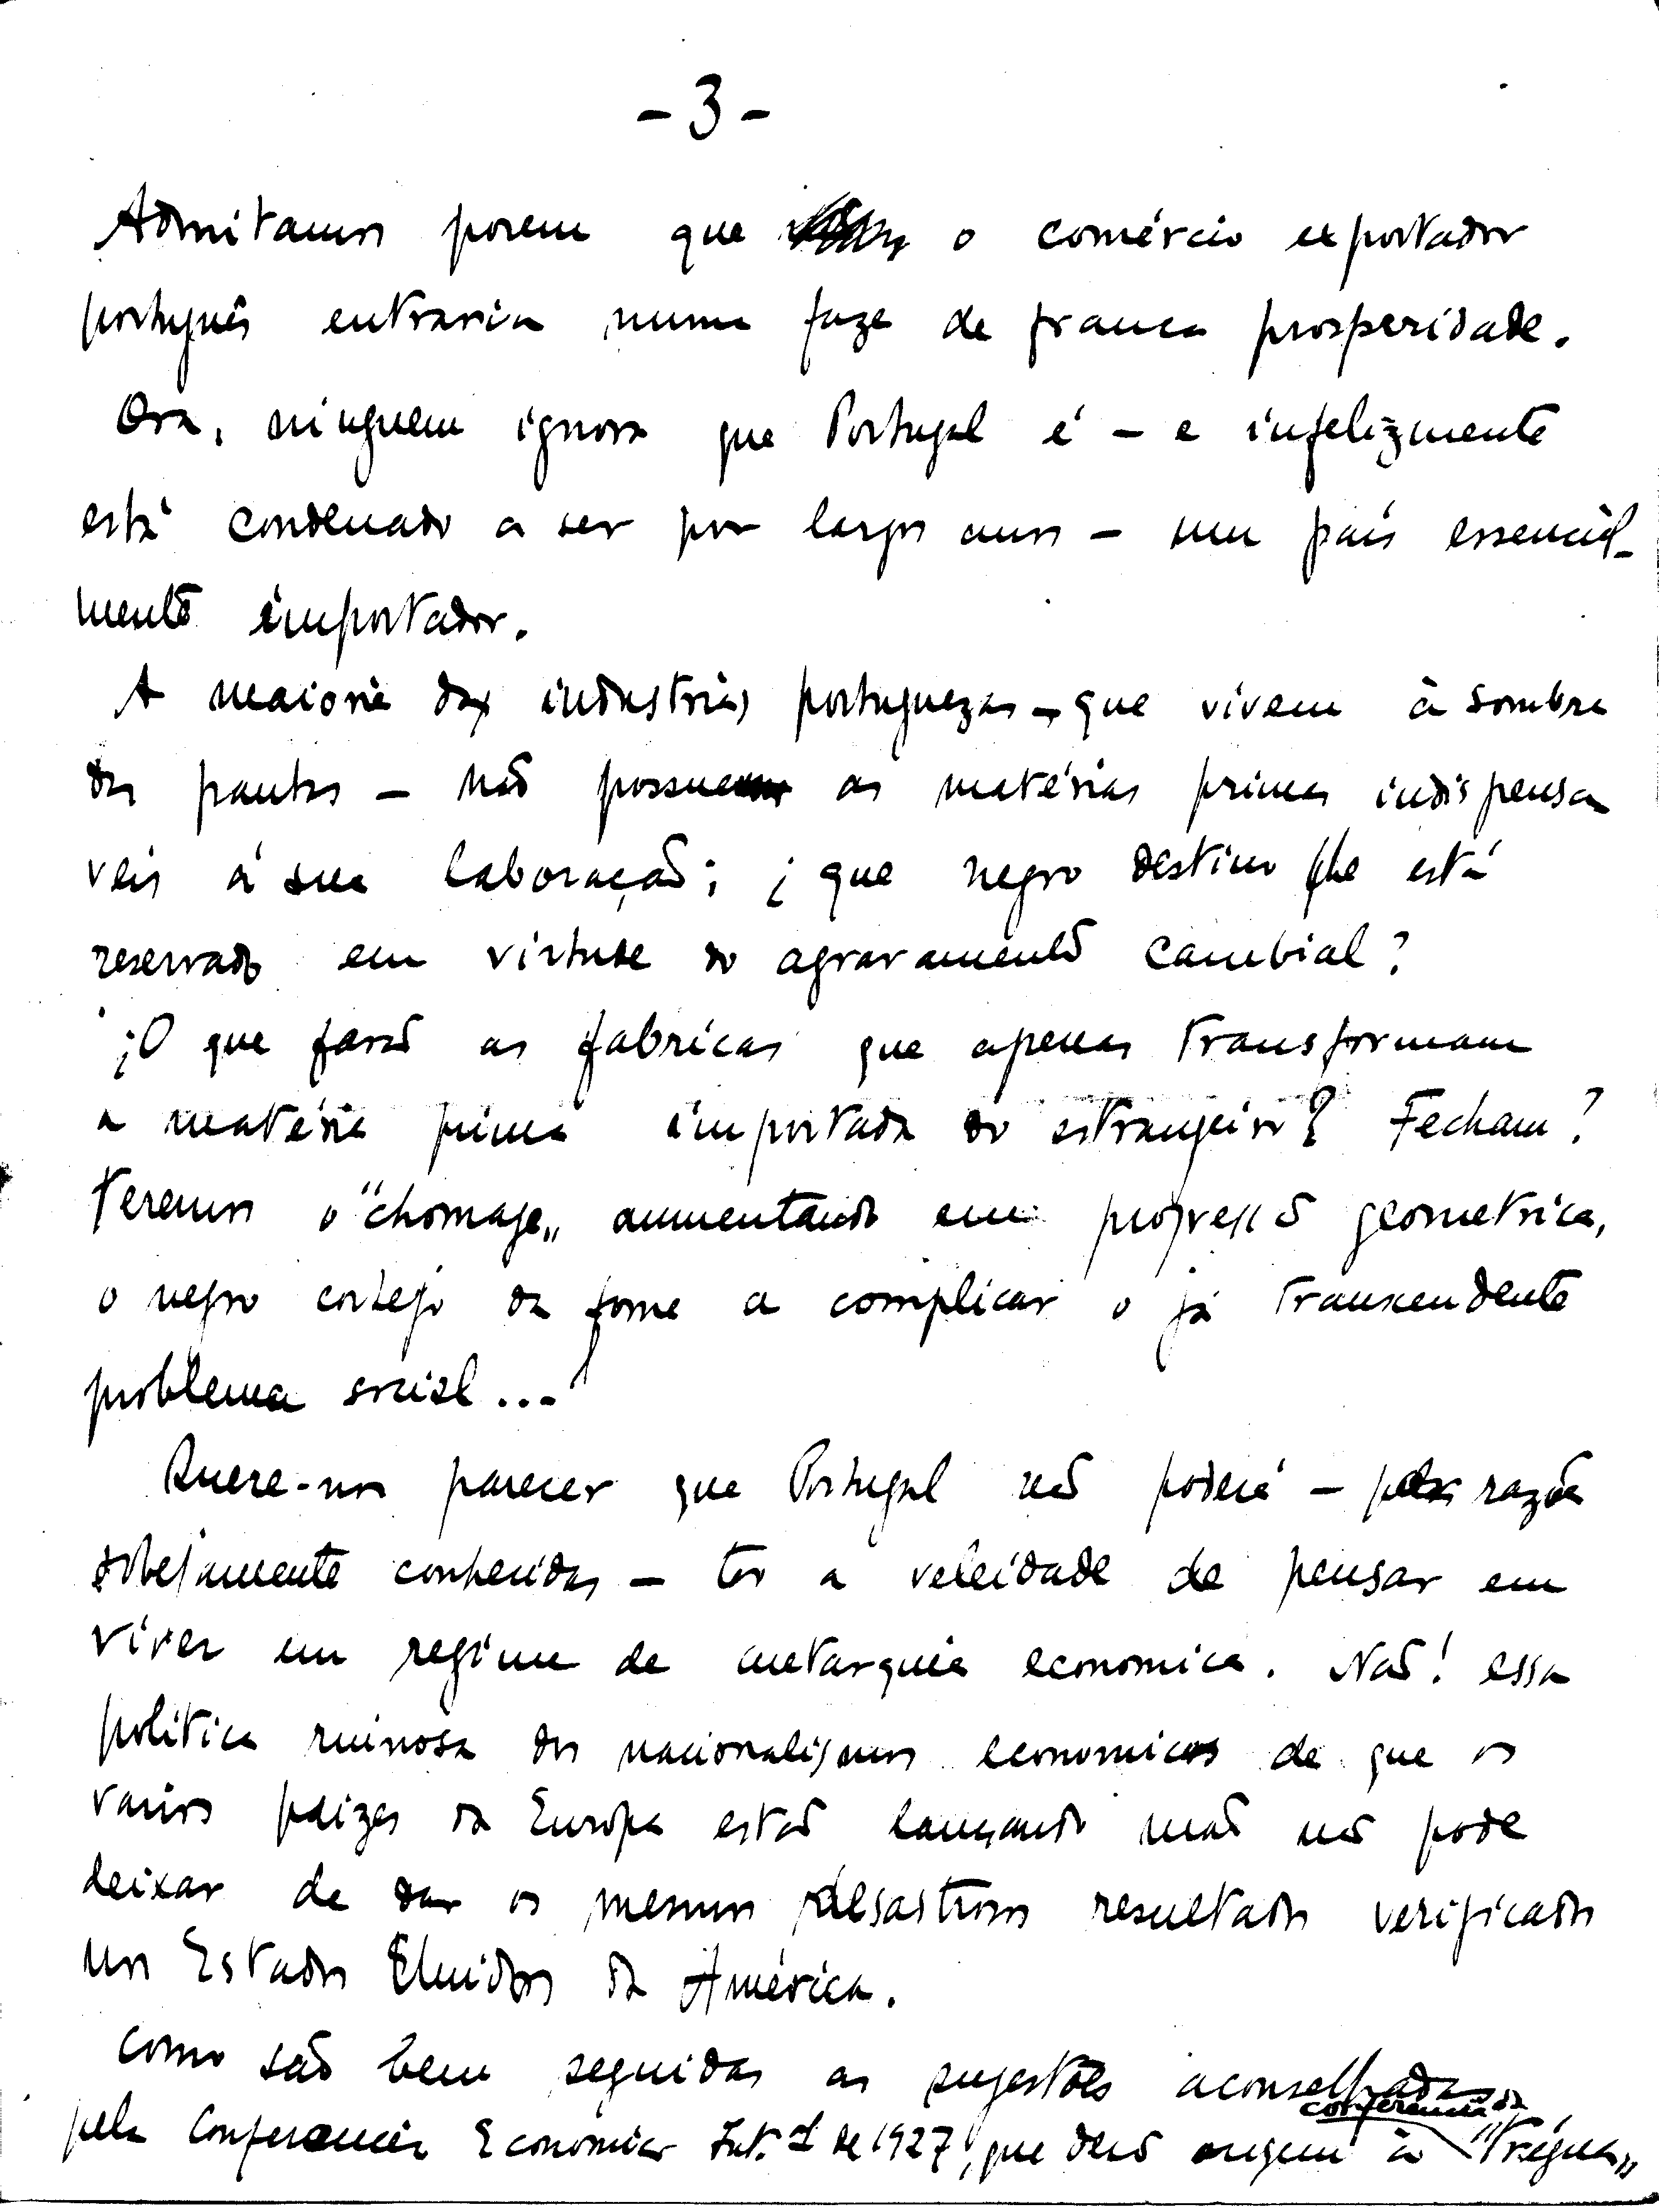 - 3 -
Admitamos porem que o comércio exportador
português entraria numa faze de franca prosperidade.
Ora, ninguem ignora que Portugal é - e infelizmente
está condenado a ser por largos anos - um país essencial-
mente importador.
A maioria das industrias portuguezas - que vivem à sombra
das pautas - não possue as matérias primas indispensa
veis á sua laboração; ¿ que negro destino lhe está
reservado em virtude do agravamento cambial?
¿O que farão as fabricas que apenas transformam
a matéria prima importada do estrangeiro? Fecham?
Teremos o "chomage„ aumentando em progressão geometrica,
o negro cortejo da fome a complicar o já transcendente
problema social...
Quere-nos parecer que Portugal não poderá - pelas razões
sobejamente conhecidas - ter a veleidade de pensar em
viver em regimen de autarquia economica. Não! essa
politica ruinosa dos nacionalismos economicos de que os
varios paizes da Europa estão lançando mão não pode
deixar de dar os mesmos desastrosos resultados verificados
nos Estados Unidos da América.
Como são bem seguidas as sugestões aconselhadas
pela Conferencia Económica Int.al de 1927, que deu origem à conferencia da "Trégua„